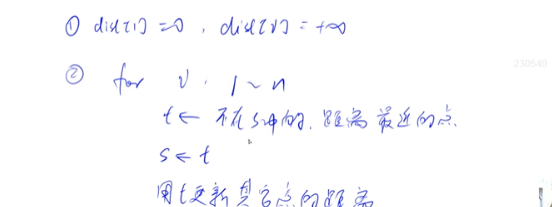 ① dist[1] = 0, dist[v] = +∞
230540
② for v: 1 ~ n
t ← 不在s中的, 距离最近的点.
s ← t
用t更新其它点的距离